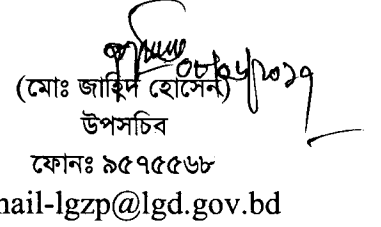 (মোঃ জাহিদ হোসেন)
উপসচিব
ফোনঃ ৯৫৭৫৫৬৮
mail-lgzp@lgd.gov.bd